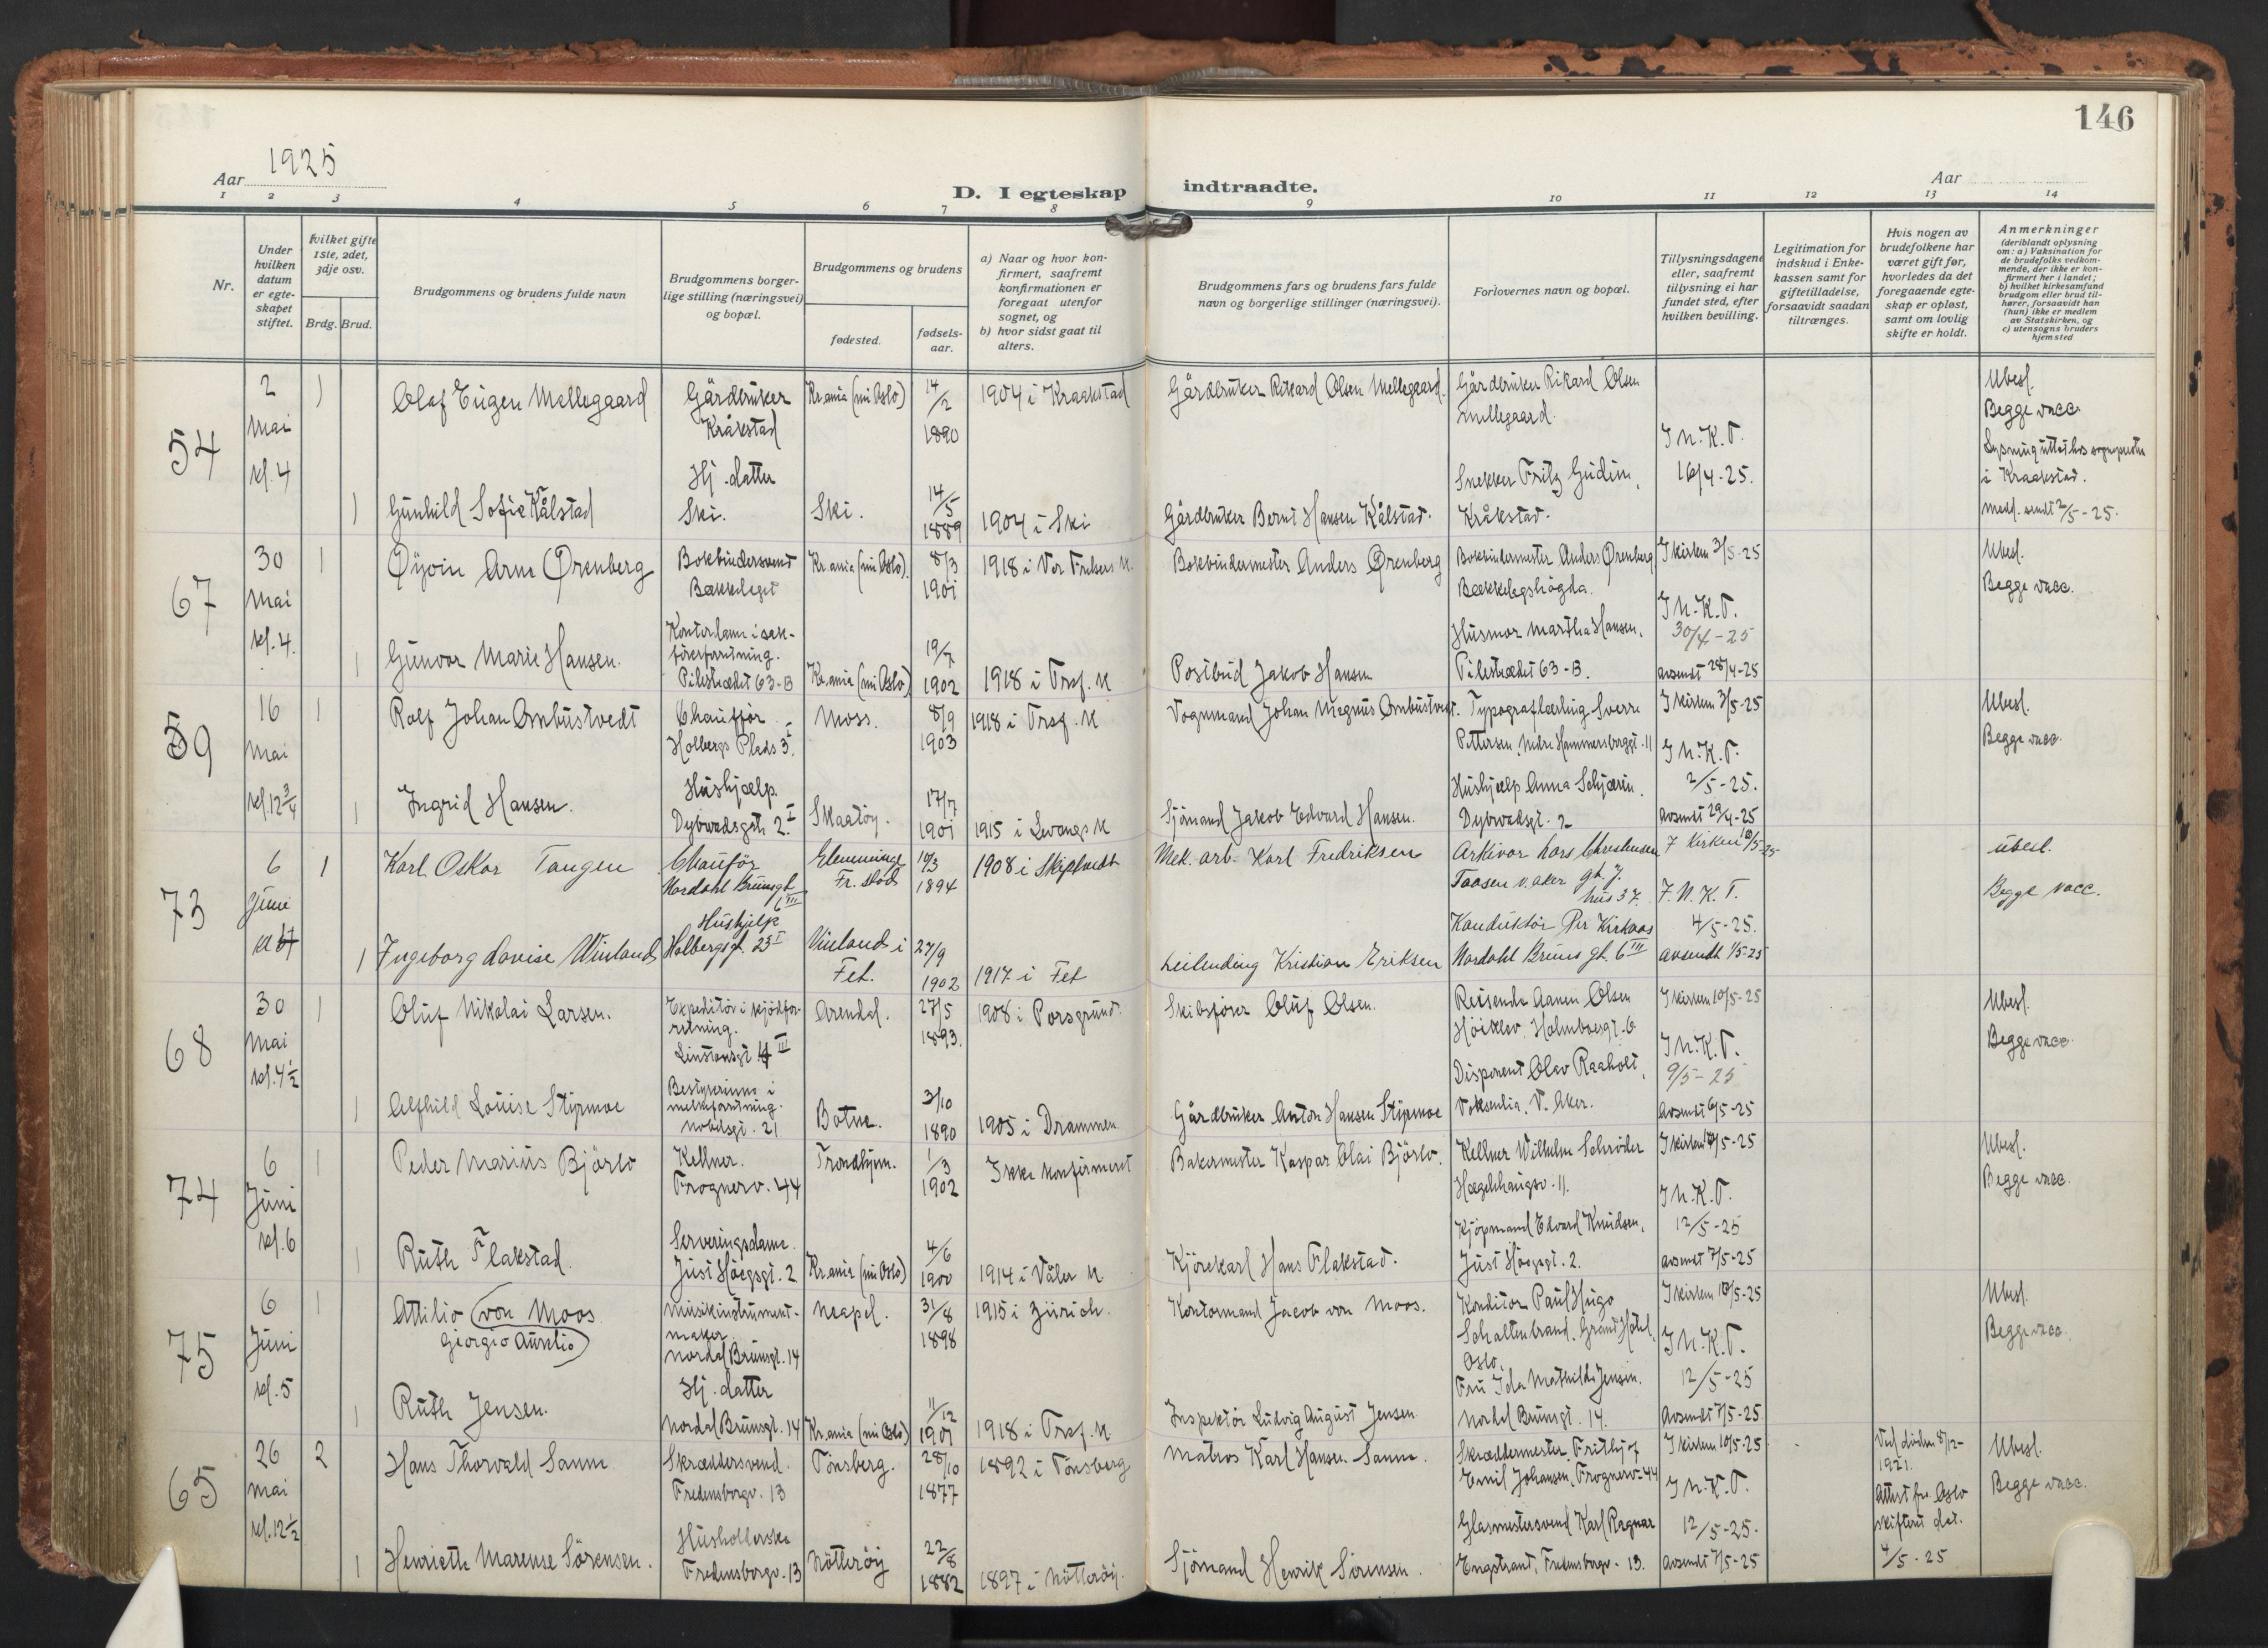 146
1925
Aar
Aar
D. I egteskap indtraadte.
1 2 3 4 5 6 7 8 9 10 11 12 13 14
Nr.
Under hvilken datum er egteskapet stiftet.
hvilket gifte 1ste, 2det, 3dje osv.
Brdg. Brud.
Brudgommens og brudens fulde navn
Brudgommens borgerlige stilling (næringsvei) og bopæl.
Brudgommens og brudens
fødested.
fødselsaar.
a) Naar og hvor konfirmert, saafremt konfirmationen er foregaat utenfor sognet, og
b) hvor sidst gaat til alters.
Brudgommens fars og brudens fars fulde navn og borgerlige stillinger (næringsvei).
Forlovernes navn og bopæl.
Tillysningsdagene eller, saafremt tillysning ei har fundet sted, efter hvilken bevilling.
Legitimation for indskud i Enkekassen samt for giftetilladelse, forsaavidt saadan tiltrænges.
Hvis nogen av brudefolkene har været gift før, hvorledes da det foregaaende egteskap er opløst, samt om lovlig skifte er holdt.
Anmerkninger
(deriblandt oplysning om: a) Vaksination for de brudefolks vedkommende, der ikke er konfirmert her i landet; b) hvilket kirkesamfund brudgom eller brud tilhører, forsaavidt han (hun) ikke er medlem av Statskirken, og c) utensogns bruders hjemsted
54
2 Mai kl. 4
1 Olaf Eugen Mellegaard
Gårdbruker Kråkstad
Kr.ania (nu Oslo)
14/2 1890
1904 i Kraakstad
Gårdbruker Rikard Olsen Mellegaard.
Gårdbruker Rikard Olsen Mellegaard.
I N.K.T. 16/4-25.
Ubesl.
Begge vacc.
i Kraakstad.
Medd. sendt 2/5-25.
1 Gunhild Sofie Kålstad
Hj. datter Ski.
Ski.
14/5 1889
1904 i Ski
Gårdbruker Bernt Hansen Kålstad.
Snekker Fritz Gudim, Kråkstad.
67
30 Mai kl. 4.
1 Øivin Arne Ørenberg
Bokbindersvend Bækkeleget
Kr.ania (nu Oslo).
8/3 1901
1918 i Vor Frelsers K.
Bokbindermester Anders Ørenberg
Bokbindermester Anders Ørenberg Bækkelegshögda.
I kirken 3/5-25
I N.K.T. 30/4-25
avsendt 28/4-25
Ubesl.
Begge vacc.
1 Gunvor Marie Hansen.
Pilestrædet 63-B
Kr.ania (nu Oslo)
19/7 1902
1918 i Trsf. K
Postbud Jakob Hansen
Husmor Martha Hansen, Pilestrædet 63-B.
59
16 Mai kl. 12 3/4
1 Rolf Johan Ombustvedt
Chauffør Holbergs Plads 3 I.
Moss.
8/9 1903
1918 i Trsf. K
Vognmand Johan Magnus Ombustvedt.
Typograflærling Sverre Pettersen, Nedre Hammersborggt. 11
I kirken 3/5-25
I N.K.T. 2/5-25.
avsendt 29/4-25
Ubesl.
Begge vacc.
1 Ingrid Hansen.
Hushjælp. Dybwadsgt. 2 I.
Skaatøy.
17/7 1901
1915 i Levangs K
Sjömand Jakob Edvard Hansen.
Hushjælp Anna Schjærin. Dybwadsgt. 2
73
6 Juni
1 Karl Oskar Tangen
Chauför Nordahl Brunsgt. 6 III
Glemminge Fr.stad
10/3 1894
1908 i Skiptvedt
Mek. arb. Karl Fredriksen
Arkivar Lars Christensen Taasen v. Aker gt. 7. hus 37.
I Kirken 10/5-25
I. N. K. T. 4/5-25.
avsendt 1/5-25
Ubesl.
Begge vacc.
1 Ingeborg Lovise Vinland
Hushjelp Holbergsgt. 23 I
Vinland i Fet.
27/9 1902
1917 i Fet
Leilending Kristian Eriksen
Konduktör Per Kirkaas Nordahl Bruns gt. 6 III
68
30 Mai kl. 4 1/2
1 Oluf Nikolai Larsen.
Expeditör i kjödforretning. Linstowsgt. 4 III
Arendal.
27/5 1893.
1908 i Porsgrund.
Skibsförer Oluf Olsen.
Reisende Aanen Olsen Höiklev. Holmboegt. 6
I kirken 10/5-25
I N.K.T. 9/5-25
Avsendt 6/5-25
Ubesl.
Begge vacc.
1 Alfhild Louise Styrmoe
Bestyrerinne i melkeforretning. Nobelsgt. 21
Botne.
3/10 1890
1905 i Drammen.
Gårdbruker Anton Hansen Styrmoe
Disponent Olav Raaholt, Voksenlia. V. Aker.
74
6 Juni kl. 6
1 Peder Marius Bjørlo
Kellner. Frognerv. 44
Trondhjem.
1/3 1902
Ikke konfirmert
Bakermester Kaspar Olai Bjørlo.
Kellner Wilhelm Schröder Hægdehaugsv. 11.
I kirken 10/5-25
I N.K.T. 12/5-25
avsendt 7/5-25
Ubesl.
Begge vacc.
1 Ruth Flakstad.
Serveringsdame. Just Höegsgt. 2
Kr.ania (nu Oslo)
4/6 1900
1914 i Våler K
Kjörekarl Hans Flakstad.
Kjöpmand Edvard Knudsen, Just Höegsgt. 2.
75
6 Juni kl. 5
1 Attilio (von Moos Giorgio Aurelio)
Musikinstrumentmaker. Nordal Brunsgt. 14
Neapel.
31/8 1898
1915 i Zürich.
Kontormand Jacob von Moos.
Konditor Paul Hugo Schaltenbrand. Grand Hotel, Oslo.
I kirken 10/5-25
I N.K.T. 12/5-25
Avsendt 7/5-25.
Ubesl.
Begge vacc.
1 Ruth Jensen.
Hj. datter Nordal Brunsgt. 14
Kr.ania (nu Oslo)
11/12 1901
1918 i Trsf. K
Inspektör Ludvig August Jensen
Fru Ida Mathilde Jensen. Nordal Brunsgt. 14.
65
26 Mai kl. 12 1/2
2 Hans Thorvald Sanne
Skræddersvend. Fredensborgv. 13
Tönsberg.
28/10 1877
1892 i Tönsberg
Matros Karl Hansen Sanne.
Skræddermester Frithjof Emil Johansen, Frognerv. 44
I kirken 10/5-25
I N.K.T. 12/5-25.
Avsendt 7/5-25
Ved döden 8/12-1921.
Attest fra Oslo skifterett dat. 4/5-25
Ubesl.
Begge vacc.
1 Henriette Marense Sörensen.
Husholderske Fredensborgv. 13
Nötteröy
22/8 1882
1897 i Nötteröy.
Sjömand Henrik Sörensen.
Glasmestersvend Karl Ragnar Engstrand, Fredensborgv. 13.